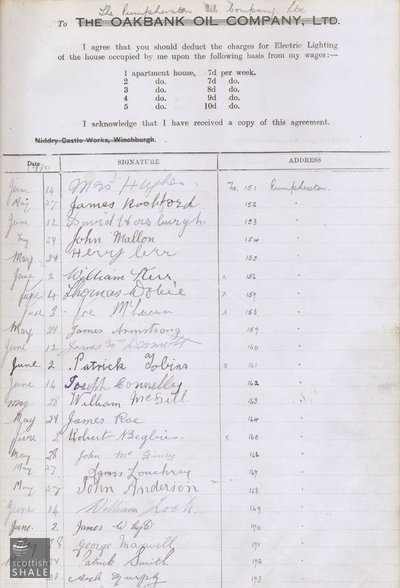 The Pumpherston Oil Company, Ltd.
To THE OAKBANK OIL COMPANY, LTD.
I agree that you should deduct the charges for Electric Lighting
of the house occupied by me upon the following basis from my wages:—
1 apartment house, 7d per week.
2 do. 7d do.
3 do. 8d do.
4 do. 9d do.
5 do. 10d do.
I acknowledge that I have received a copy of this agreement.
Niddry Castle Works, Winchburgh.
Date SIGNATURE ADDRESS
June 14 Mrs Hughes To 151 Pumpherston.
May 27 James Rochford 152 "
June 12 David Horsburgh. 153 "
May 24 John Mallon 154 "
May 24 Henry Kerr 155 "
June 2 William Kerr x 156 "
June 4 Thomas Dobie x 157 "
June 3 Joe x 158 "
May 27 James Armstrong 159 "
June 12 James McDermott 160 "
June 2 Patrick Tobins x 161 "
June 14 Joseph Connelly 162 "
May 28 William McGill 163 "
May 24 James Rae 164 "
June 2 Robert Begbie. x "
May 28 John McGinley "
May 27 James Loughrey "
May 27 John Anderson 168 "
June 14 William 169 "
June 2. James W "
8 George Maxwell "
Patrick Smith "
Arch Murphy "
scottish
SHALE